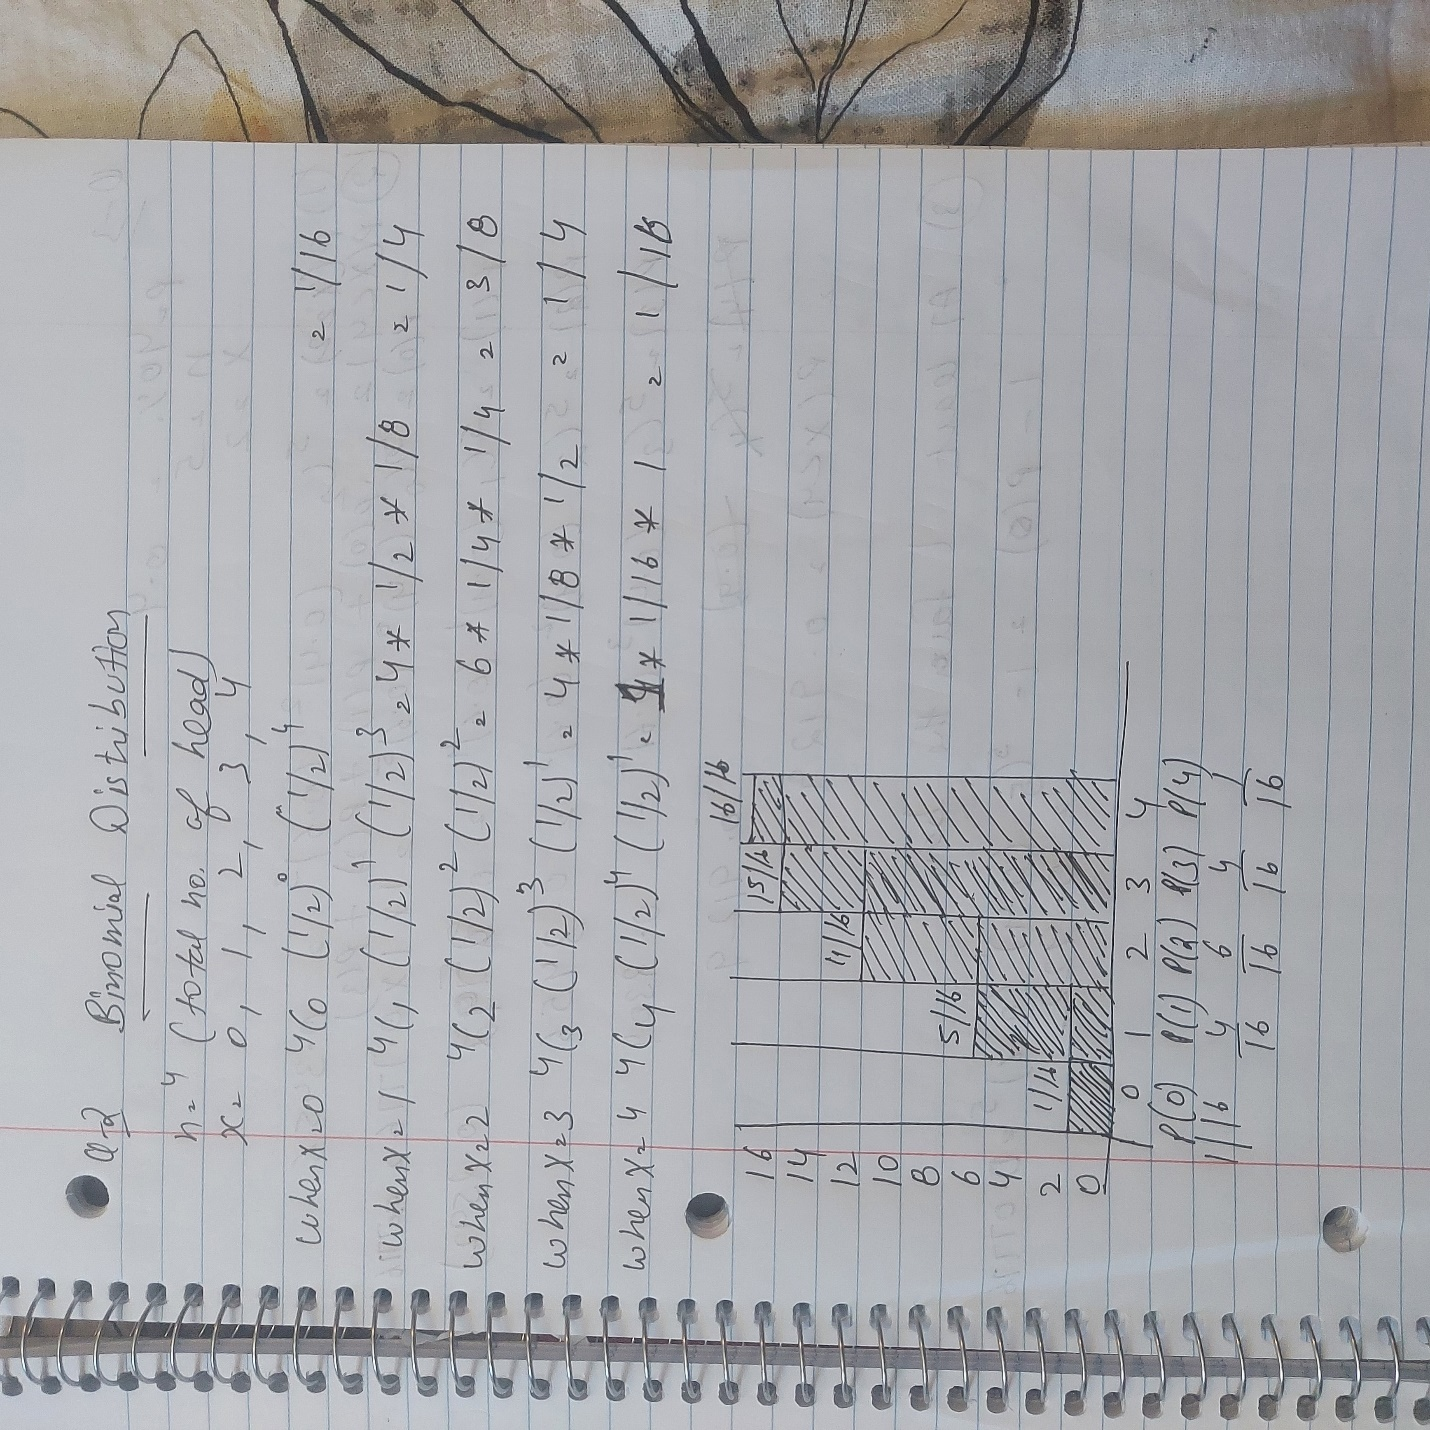 Q-2 Binomial Distribution
n=4 (total no. of head)
x= 0, 1, 2, 3, 4
when x=0 4C0 (1/2)^0 (1/2)^4 = 1/16
when x=1 4C1 (1/2)^1 (1/2)^3 = 4 * 1/2 * 1/8 = 1/4
when x=2 4C2 (1/2)^2 (1/2)^2 = 6 * 1/4 * 1/4 = 3/8
when x=3 4C3 (1/2)^3 (1/2)^1 = 4 * 1/8 * 1/2 = 1/4
when x=4 4C4 (1/2)^4 (1/2)^1 = 1 * 1/16 * 1 = 1/16
16/16
16 15/16
14
12 11/16
10
8
6 5/16
4
2 1/16
0
0 1 2 3 4
P(0) P(1) P(2) P(3) P(4)
1/16 4/16 6/16 4/16 1/16